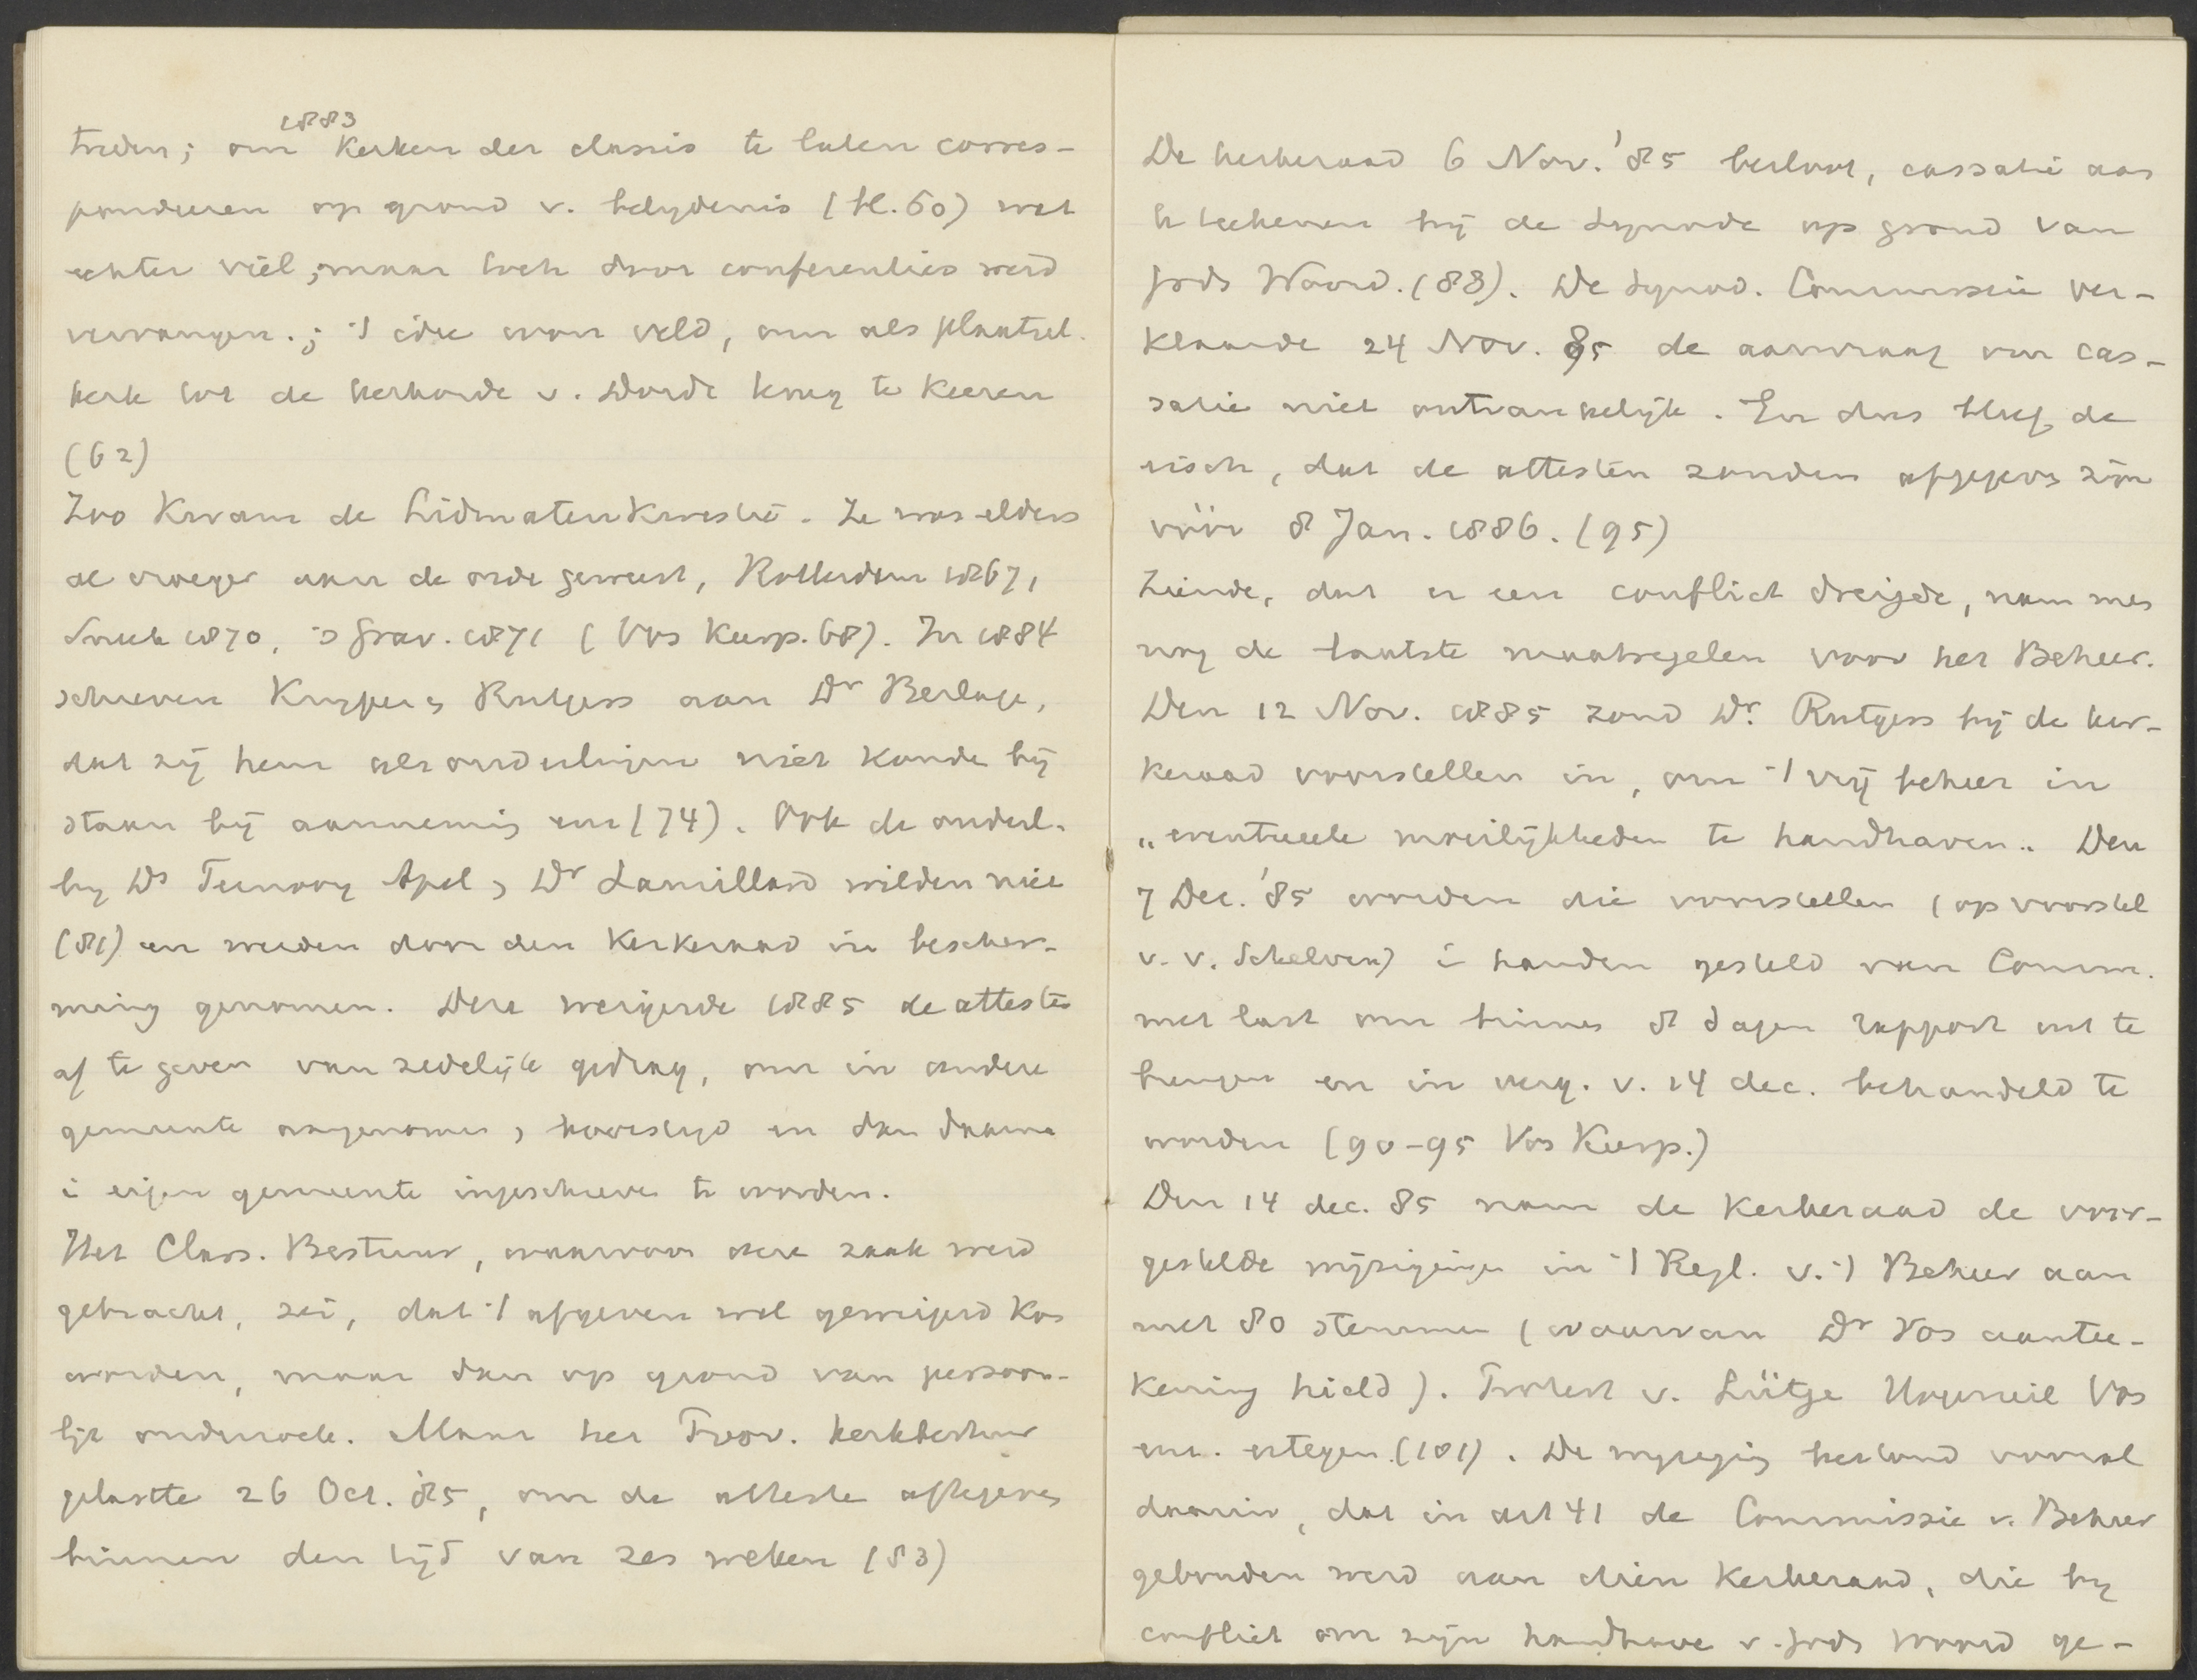 1883
treden; om Kerken der classis te laten corres-
ponderen op grond v. belydenis (bl. 60) wat
echter viel; maar toch door conferenties werd
vervangen.; 't idee won veld, om als plaatsel.
kerk tot de kerkorde v. Dordt terug te keeren
(62)
Zoo kwam de Lidmatenkwestie. Ze was elders
al vroeger aan de orde geweest, Rotterdam 1867,
Sneek 1870, 's Grav. 1871 (Vos Keerp. 68). In 1884
schreven Kuyper en Rutgers aan Dr Berlage,
dat zij hem als ouderlingen niet konden bij
staan bij aanneming enz (74). Ook de ouderl.
by Ds Ternooy Apel, Dr Laurillard wilden niet
(81) en werden door den Kerkeraad in bescher-
ming genomen. Deze weigerde 1885 de attesten
af te geven van zedelijk gedrag, om in andere
gemeente aangenomen, bevestigd en dan daarna
i eigen gemeente ingeschreven te worden.
Het Class. Bestuur, waarvoor deze zaak werd
gebracht, zei, dat 't afgeven wel geweigerd kon
worden, maar dan op grond van persoon-
lijk onderzoek. Maar het Prov. kerkbestuur
gelastte 26 Oct. '85, om de attesten af te geven
binnen den tijd van zes weken (83)
De kerkeraad 6 Nov. '85 besloot, cassatie aan
te teekenen bij de Synode op grond van
Gods Woord. (88). De Synod. Commissie ver-
klaarde 24 Nov. 85 de aanvraag van cas-
satie niet ontvankelijk. En dus bleef de
eisch, dat de attesten zouden afgegeven zijn
vóór 8 Jan. 1886. (95)
Ziende, dat er een conflict dreigde, nam men
nog de laatste maatregelen voor het Beheer.
Den 12 Nov. 1885 zond Dr. Rutgers bij de ker-
keraad voorstellen in, om 't vrij beheer in
„eventueele moeilijkheden te handhaven„ Den
7 Dec. '85 worden die voorstellen (op voorstel
v. v. Schelven) i handen gesteld van Comm.
met last om binnen 8 dagen rapport uit te
brengen en in verg. v. 14 dec. behandeld te
worden (90-95 Vos Keerp.)
Den 14 dec. 85 nam de Kerkeraad de voor-
gestelde wijzigingen in 't Regl. v. 't Beheer aan
met 80 stemmen (waarvan Dr Vos aantee-
kening hield). Protest v. Lütge Hogerzeil Vos
enz. ertegen (101). De wyziging bestond vooral
daarin, dat in art 41 de Commissie v. Beheer
gebonden werd aan dien Kerkeraad, die by
conflict om zijn handhave v. Gods Woord ge-